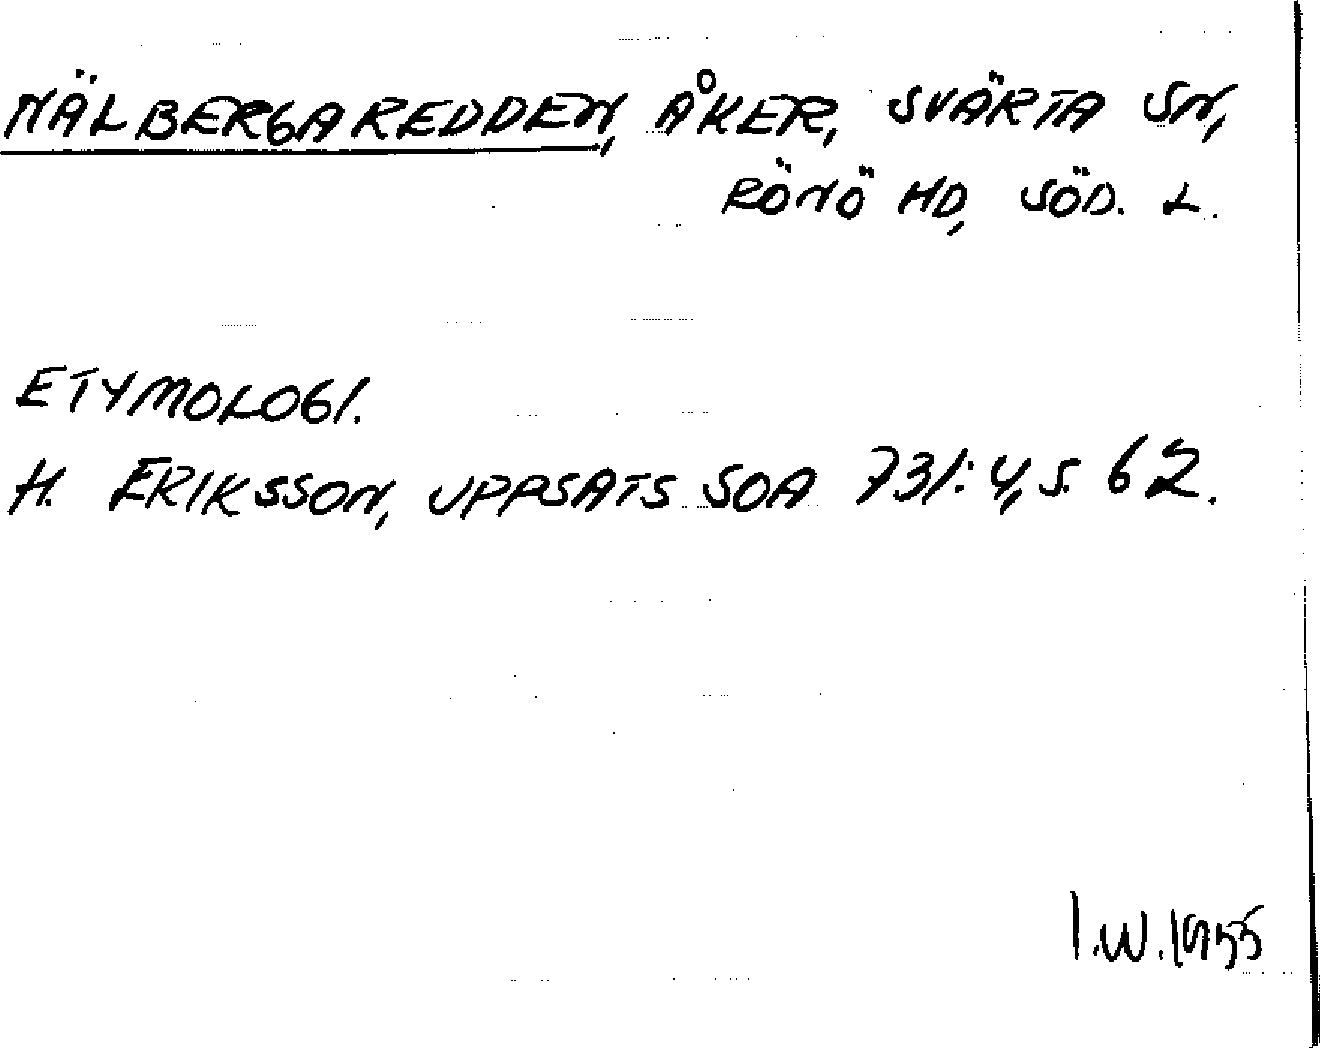 NÄLBERGAREDDEN, ÅKER, SVÄRTA SN,
RÖNÖ HD, SÖD. L.
ETYMOLOGI.
H. ERIKSSON, UPPSATS SOA 731:4, S. 62.
I.W. 1955